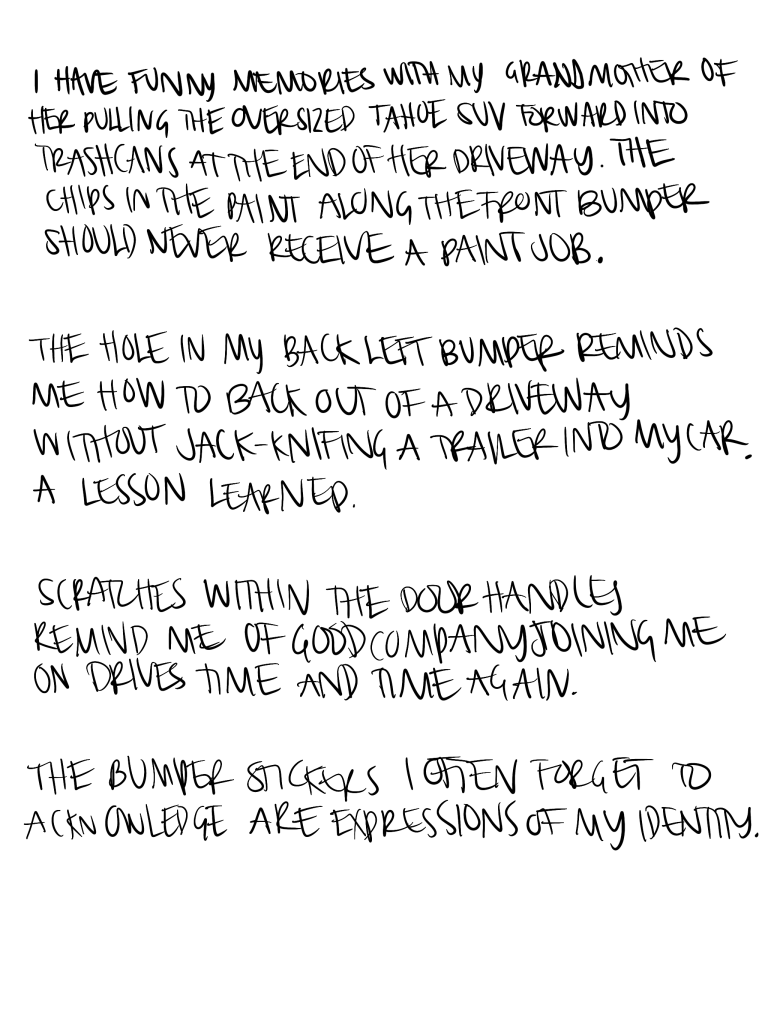 I HAVE FUNNY MEMORIES WITH MY GRANDMOTHER OF
HER PULLING THE OVERSIZED TAHOE SUV FORWARD INTO
TRASHCANS AT THE END OF HER DRIVEWAY. THE
CHIPS IN THE PAINT ALONG THE FRONT BUMPER
SHOULD NEVER RECEIVE A PAINT JOB.

THE HOLE IN MY BACK LEFT BUMPER REMINDS
ME HOW TO BACK OUT OF A DRIVEWAY
WITHOUT JACK-KNIFING A TRAILER INTO MY CAR.
A LESSON LEARNED.

SCRATCHES WITHIN THE DOOR HANDLES
REMIND ME OF GOOD COMPANY JOINING ME
ON DRIVES TIME AND TIME AGAIN.

THE BUMPER STICKERS I OFTEN FORGET TO
ACKNOWLEDGE ARE EXPRESSIONS OF MY IDENTITY.